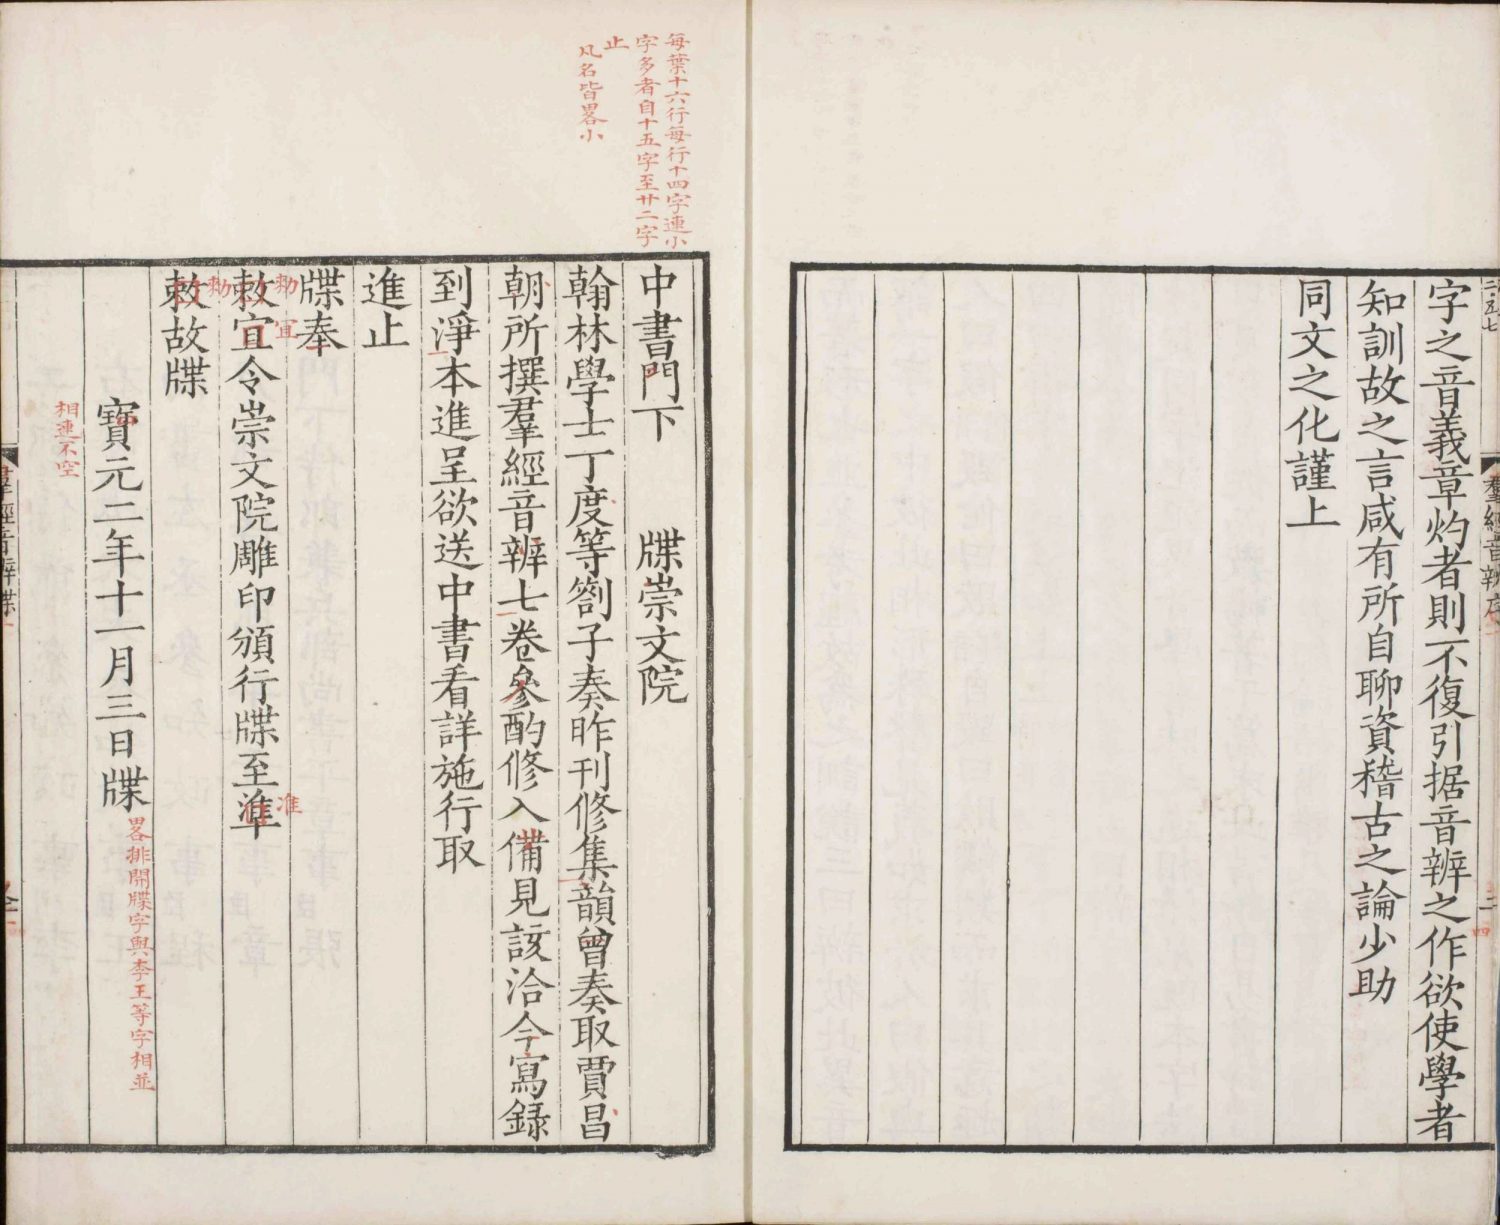 字之音義章灼者則不復引据音辨之作欲使學者
知訓故之言咸有所自聊資稽古之論少助
同文之化謹上
羣經音辨序
二
四
每葉十六行每行十四字連小
字多者自十五字至廿二字
止
凡名皆畧小
中書門下　牒崇文院
翰林學士丁度等劄子奏昨刊修集韻曾奏取賈昌
朝所撰羣經音辨七卷參酌修入備見該洽今寫錄
到淨本進呈欲送中書看詳施行取
進止
牒奉
勑宜
敕宜令崇文院雕印頒行牒至準
准
勑
敕故牒
寶元二年十一月三日牒
畧排開牒字與李王等字相並
相連不空
羣經音辨牒